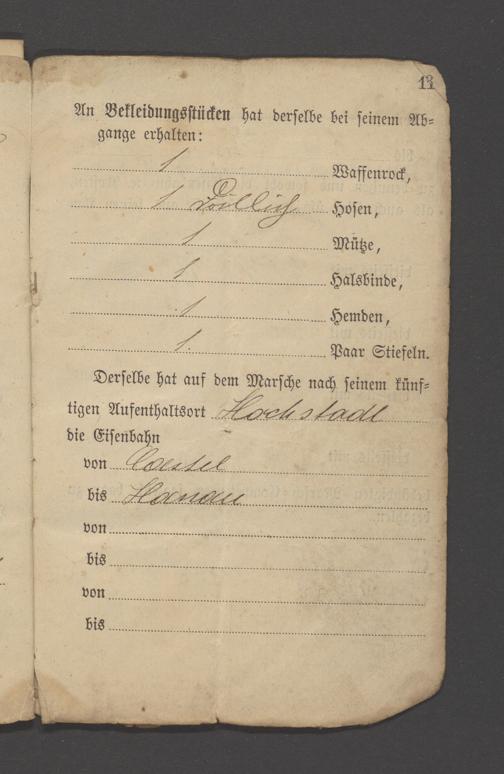 13
An Bekleidungsstücken hat derselbe bei seinem Ab-
gange erhalten:
1 Waffenrock,
1 Drillich Hosen,
1 Mütze,
1 Halsbinde,
1 Hemden,
1. Paar Stiefeln.
Derselbe hat auf dem Marsche nach seinem künf-
tigen Aufenthaltsort Hochstadt
die Eisenbahn
von Cassel
bis Hanau
von
bis
von
bis